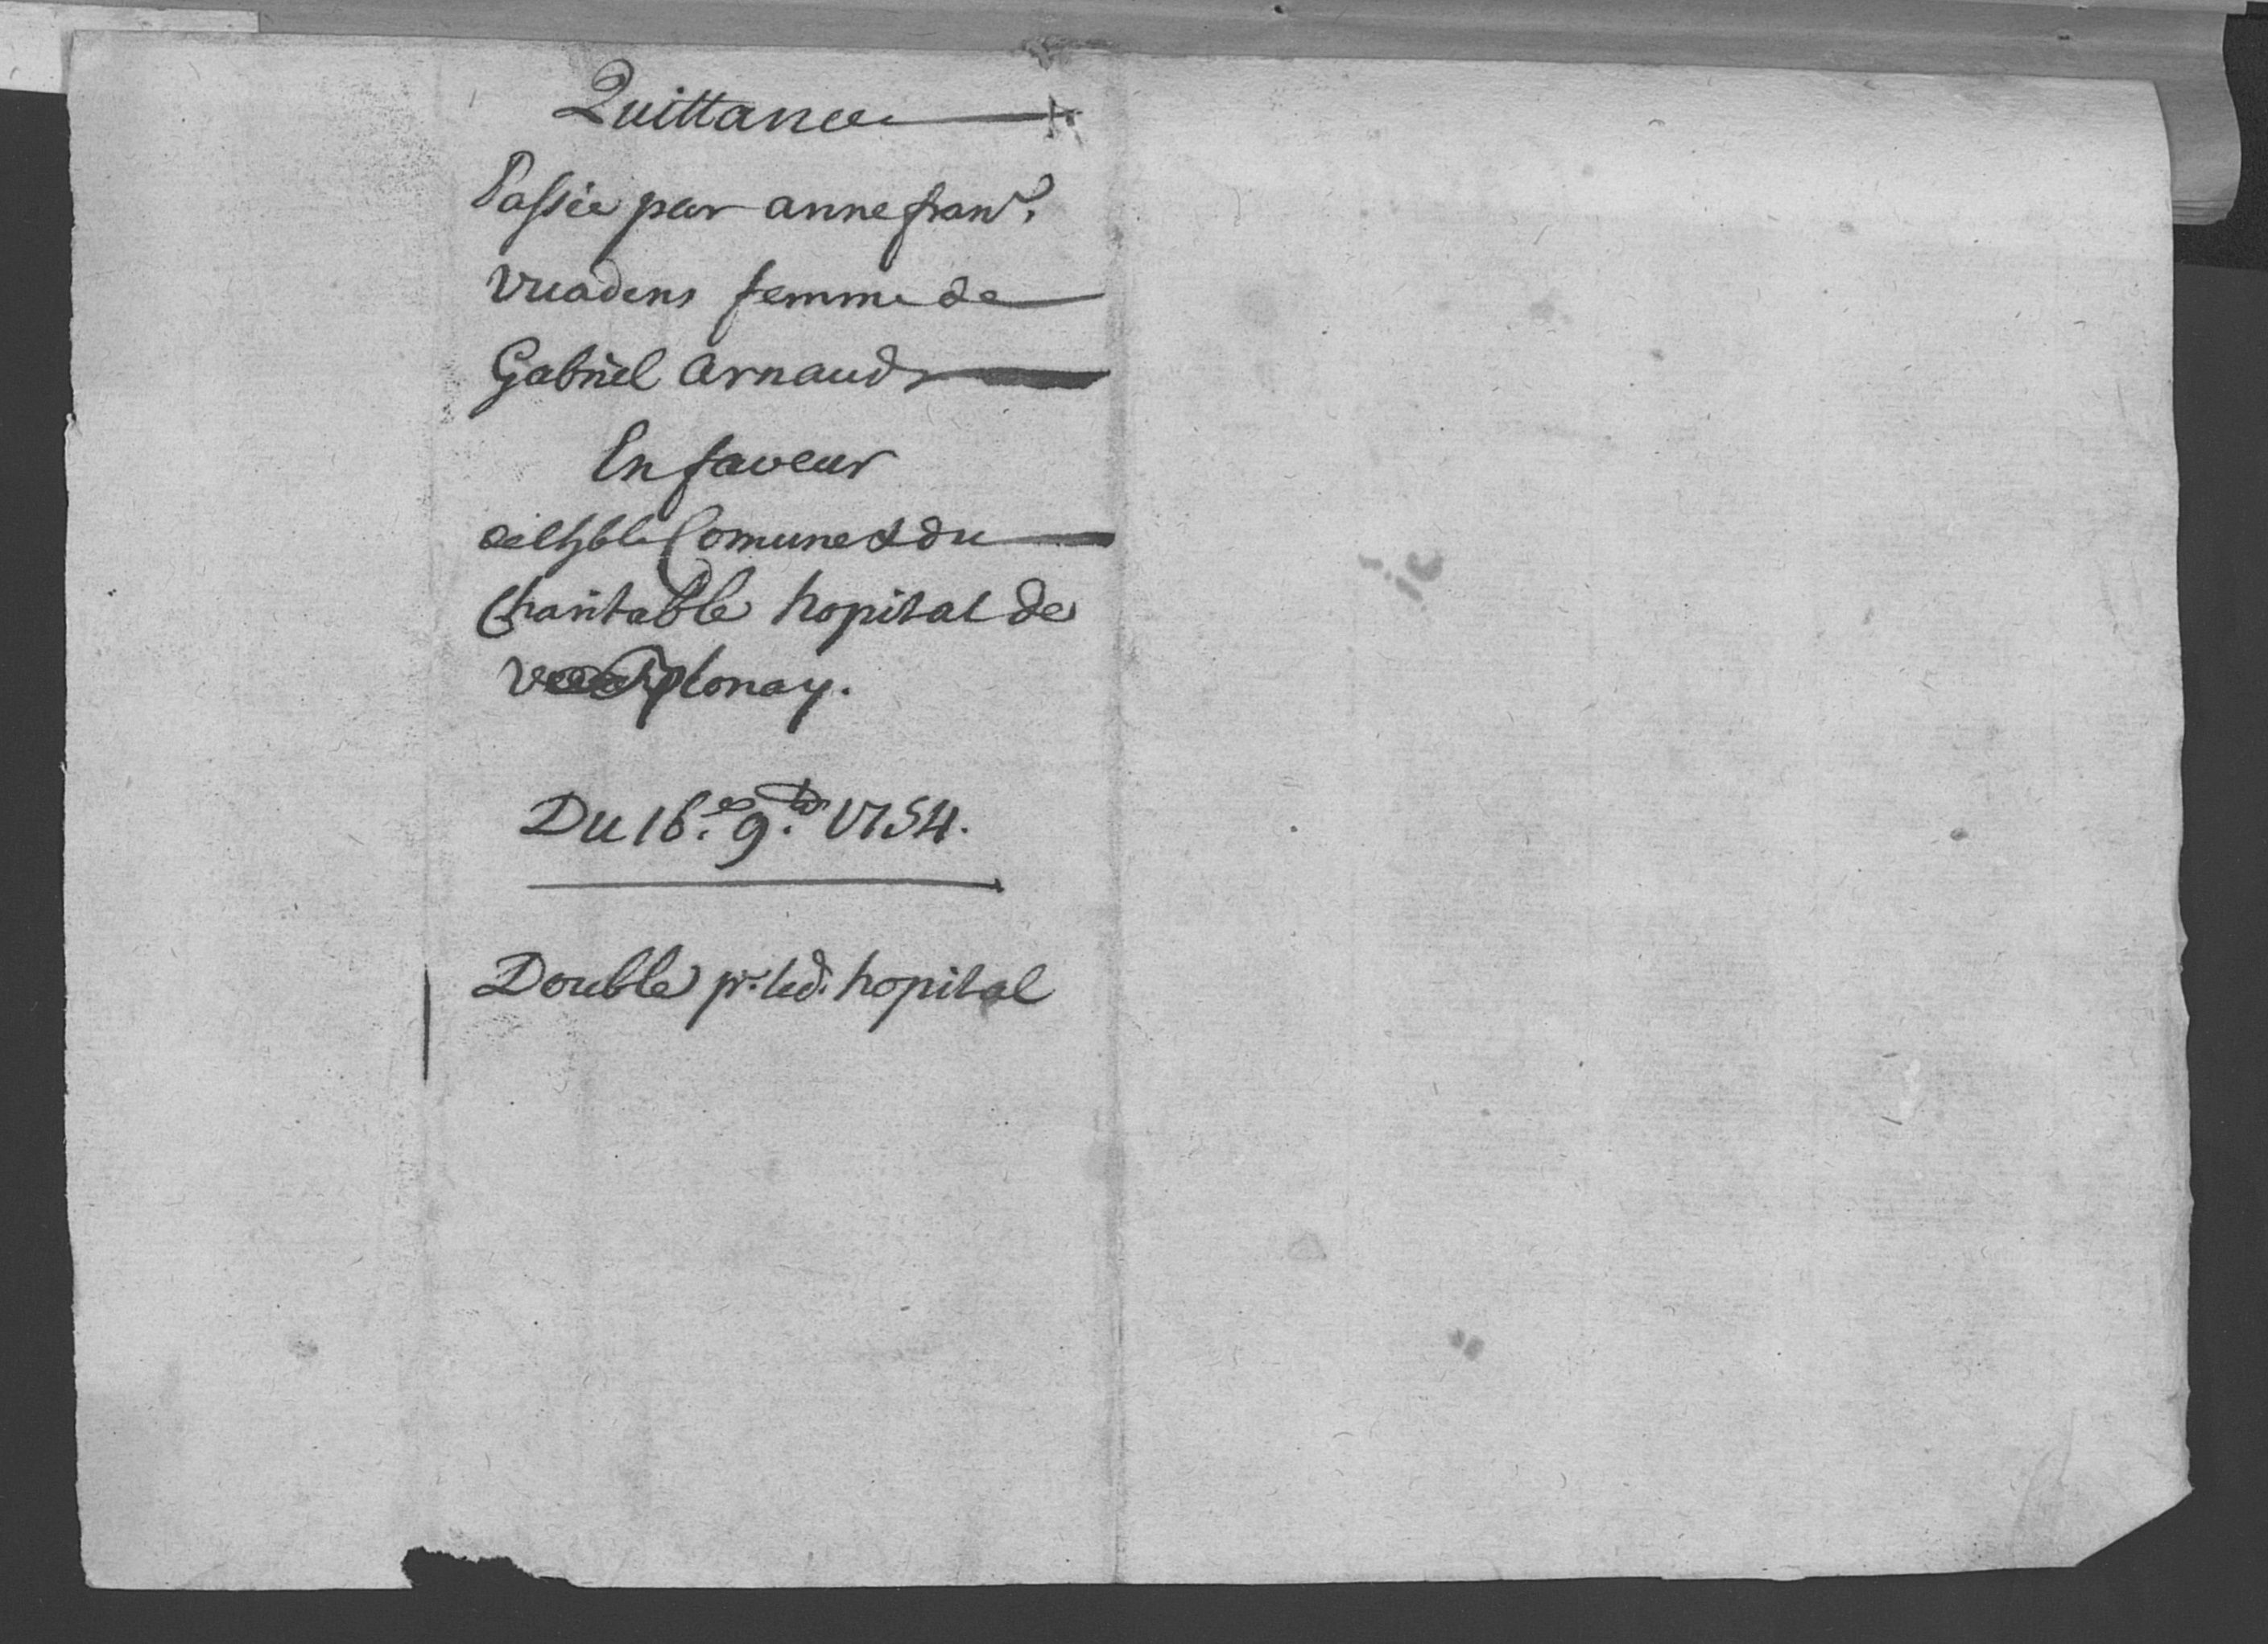 Quittance
Passée par anne fran.se
Vuadens femme de
Gabriel Arnaud
En faveur
de l'h.ble Comune & du
Charitable hopital de
Blonay.
Du 16.e 9.bre 1754.
Double p.r led. hopital